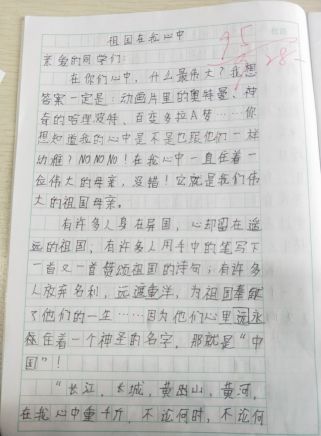 祖国在我心中
95
28
亲爱的同学们:
在你们心中,什么最伟大?我想
答案一定是:动画片里的奥特曼、神
奇的哈理波特、百变多拉A梦……你
想知道我的心中是不是也跟他们一样
幼稚?NONONO!在我心中一直住着一
位伟大的母亲,没错!它就是我们伟
大的祖国母亲。
有许多人身在异国,心却留在遥
远的祖国、有许多人用手中的笔写下
一首又一首赞颂祖国的诗句;有许多
人放弃名利,远渡重洋,为祖国奉献
了他们的一生……因为他们心里远永
存在着一个神圣的名字,那就是“中
国”!
“长江,长城,黄山,黄河,
在我心中重千斤,不论何时,不论何